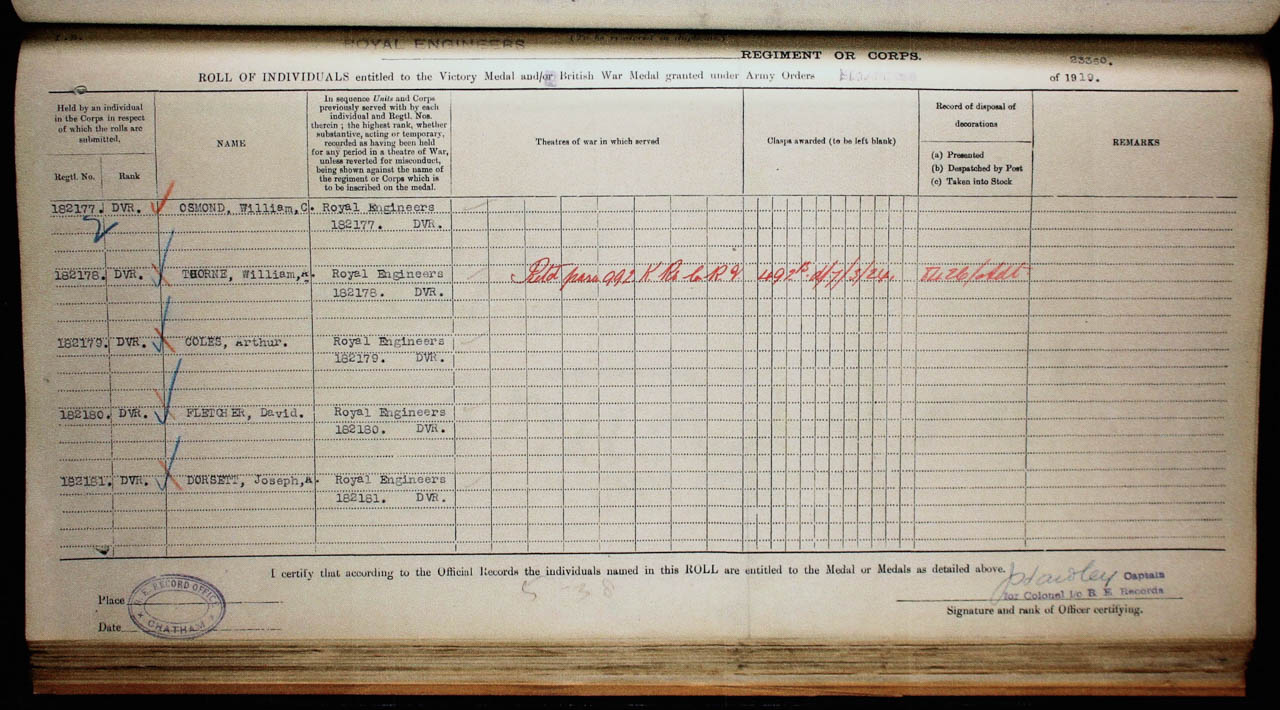 ROYAL ENGINEERS
REGIMENT OR CORPS.
ROLL OF INDIVIDUALS entitled to the Victory Medal and/or British War Medal granted under Army Orders
of 1919.
Held by an individual
in the Corps in respect
of which the rolls are
submitted.
Regtl. No.
Rank
NAME
In sequence Units and Corps
previously served with by each
individual and Regtl. Nos.
therein; the highest rank, whether
substantive, acting or temporary,
recorded as having been held
for any period in a theatre of War,
unless reverted for misconduct,
being shown against the name of
the regiment or Corps which is
to be inscribed on the medal.
Theatres of war in which served
Clasps awarded (to be left blank)
Record of disposal of
decorations
(a) Presented
(b) Despatched by Post
(c) Taken into Stock
REMARKS
182177. DVR. OSMOND, William,C. Royal Engineers
182177. DVR.
182178. DVR. THORNE, William,A. Royal Engineers
992 K
182178. DVR.
182179. DVR. COLES, Arthur. Royal Engineers
182179. DVR.
182180. DVR. FLETCHER, David. Royal Engineers
182180. DVR.
182181. DVR. DORSETT, Joseph,A. Royal Engineers
182181. DVR.
I certify that according to the Official Records the individuals named in this ROLL are entitled to the Medal or Medals as detailed above.
Captain
for Colonel i/c R. E. Records
Signature and rank of Officer certifying.
Place
Date
R. E. RECORD OFFICE
CHATHAM